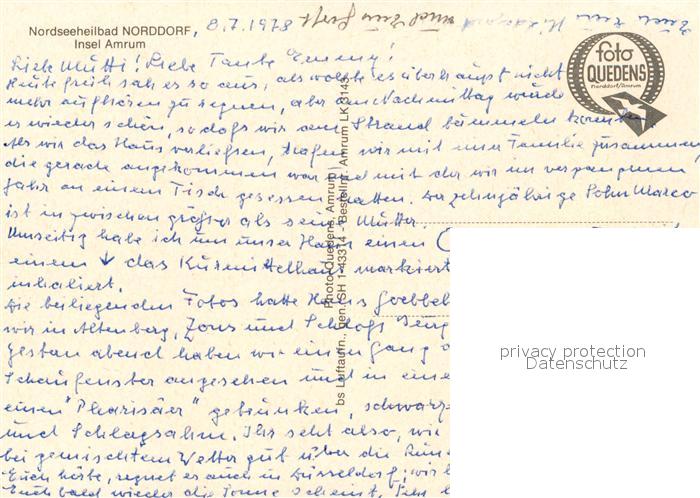 Nordseeheilbad NORDDORF,
Insel Amrum
8.7.1978
Liebe Mutti! Liebe Tante Emmy!
Heute früh sah es so aus, als wollte es überhaupt nicht
mehr aufhören zu regnen, aber am Nachmittag wurde
es wieder schön, so daß wir am Strand bummeln konnten.
Als wir das Haus verließen, trafen wir mit einer Familie zusammen,
die gerade angekommen war und mit der wir im vergangenen
Jahr an einem Tisch gesessen hatten. Der zehnjährige Sohn Marco
ist inzwischen größer als seine Mutter.
Umseitig habe ich um unser Haus einen
einem ↓ das Kurmittelhaus markiert
inhaliert.
Die beiliegenden Fotos hatte Hans Goebbel
wir in Altenberg, Zons und Schloß
Gestern abend haben wir einen Gang
Schaufenster angesehen und in eine
einen "Pharisäer" getrunken, schwarz
und Schlagsahne. Ihr seht also, wie
bei gemischtem Wetter gut über die
Euch hörte, regnet es auch in Düsseldorf; wir
Euch bald wieder die Sonne scheint.
foto
QUEDENS
Norddorf/Amrum
Photo Quedens, Amrum
bs Luftaufn., gen. SH 1-43314 - Bestellnr. Amrum LK 3143
privacy protection
Datenschutz